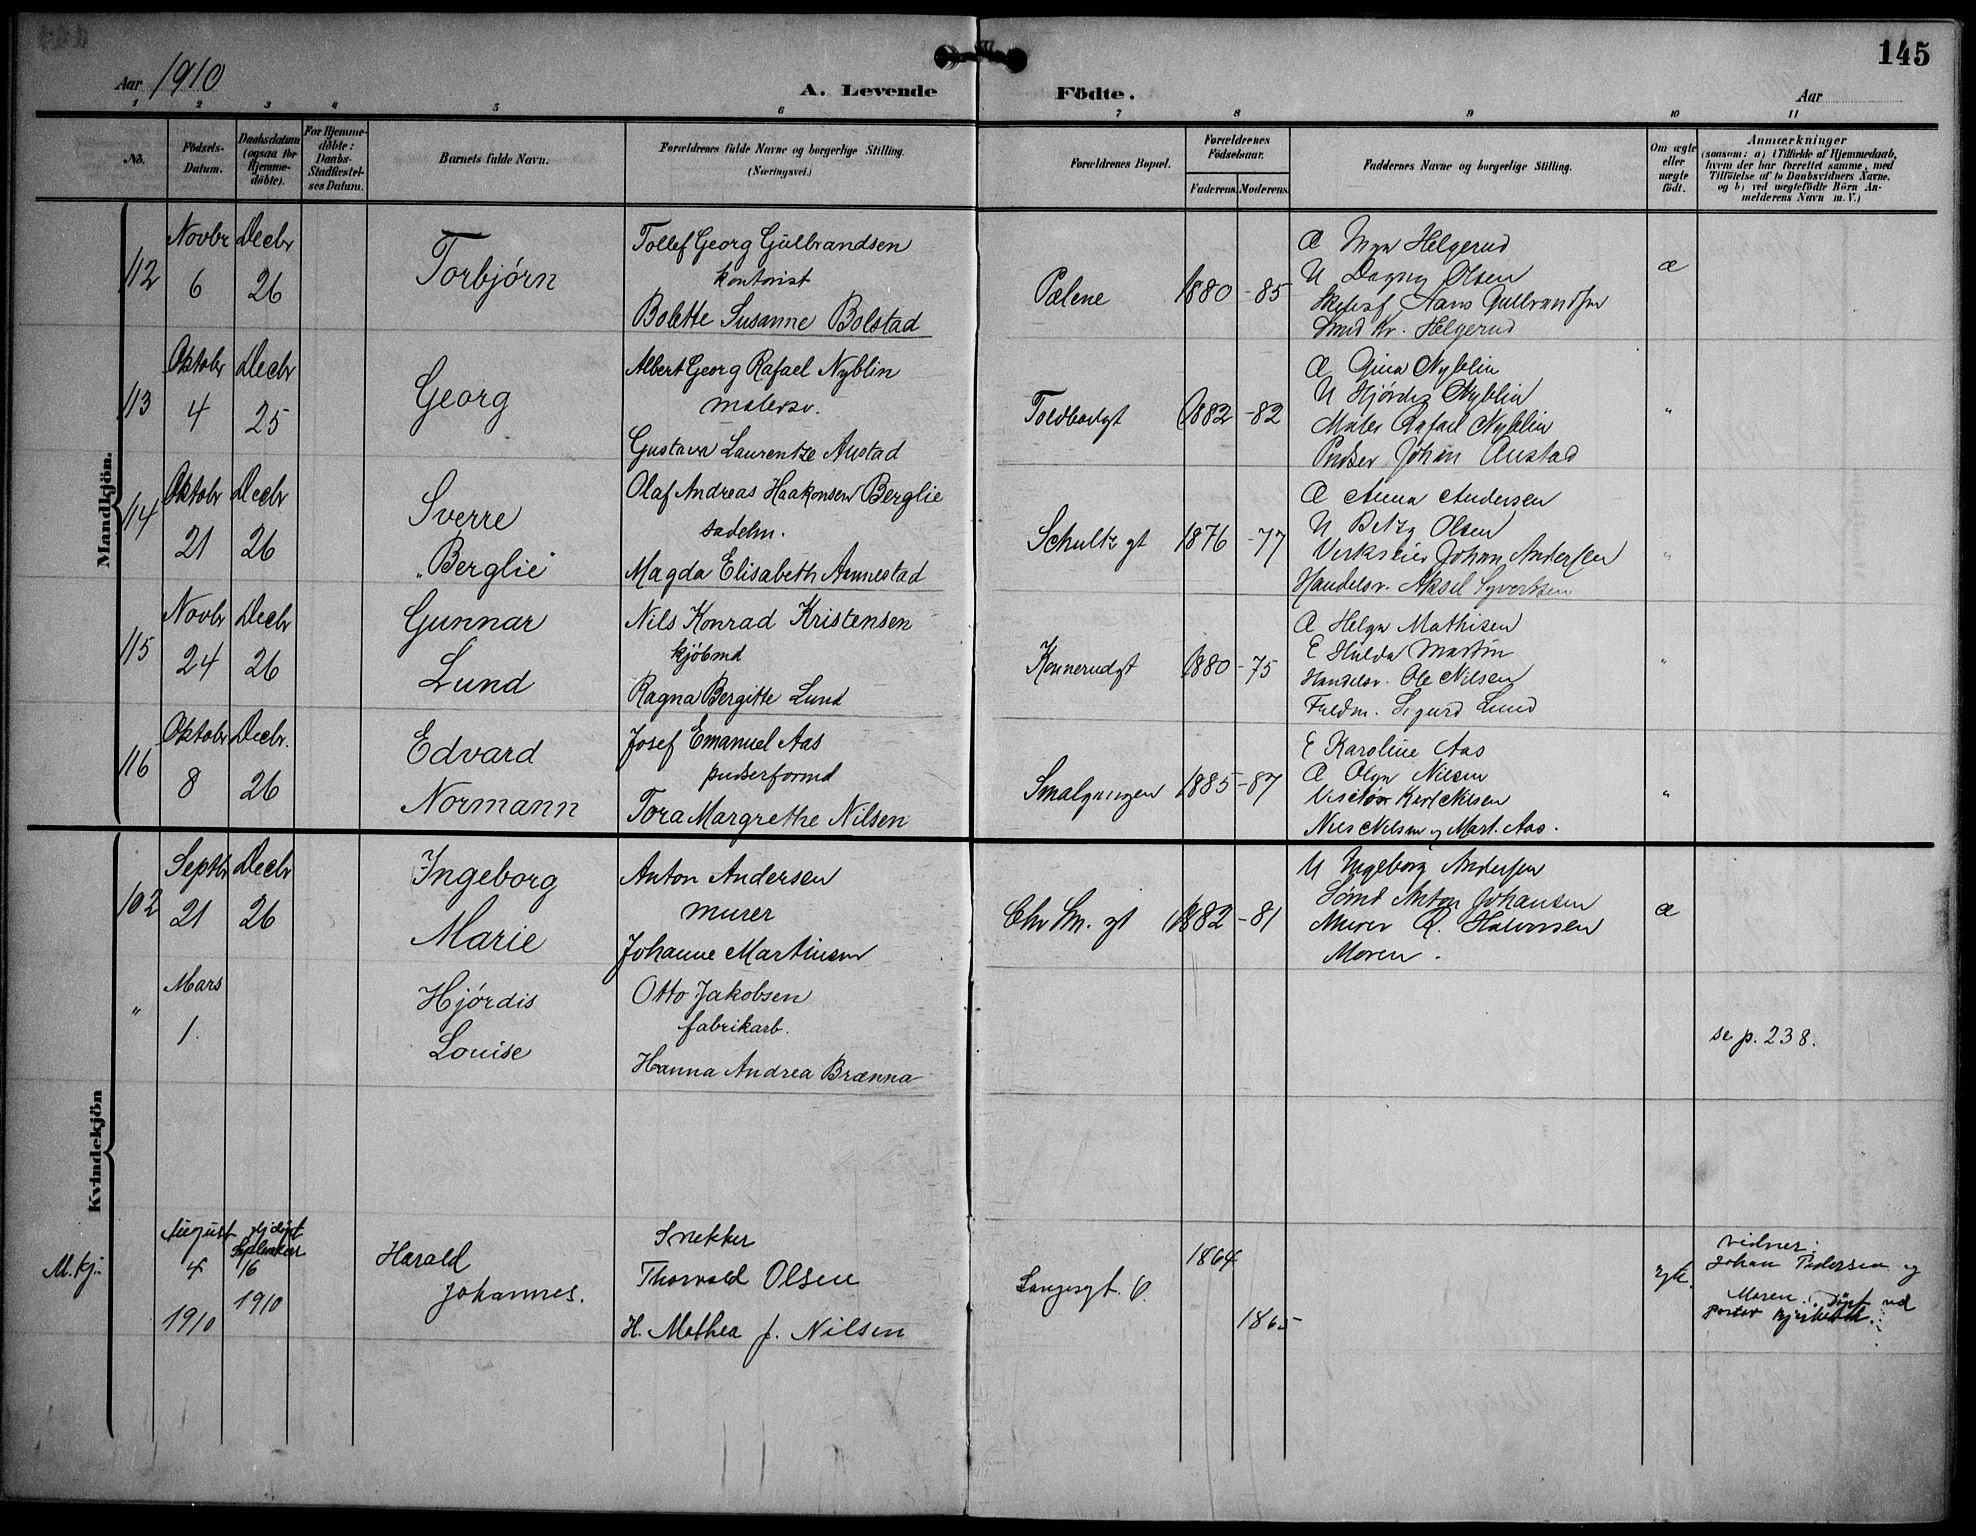 145
Aar 1910
A. Levende Födte.
Aar
1 2 3 4 5 6 7 8 9 10 11
No.
Födsels-Datum.
Daabsdatum (ogsaa for Hjemme-döbte).
For Hjemme-döbte: Daabs-Stadfæstel-ses Datum.
Barnets fulde Navn.
Forældrenes fulde Navne og borgerlige Stilling.
(Næringsvei.)
Forældrenes Bopæl.
Forældrenes Födselsaar.
Faderens. Moderens.
Faddernes Navne og borgerlige Stilling.
Om ægte eller uægte födt.
Anmærkninger
(saasom: a) i Tilfælde af Hjemmedaab, hvem der har forrettet samme, med Tilföielse af to Daabsvidners Navne, og b) ved uægtefödte Börn An-melderens Navn m. V.)
Mandkjön.
112
Novbr 6
Decbr 26
Torbjörn
Tollef Georg Gulbrandsen
kontorist
Bolette Susanne Bolstad
Pælene
1880 -85
Helgerud
U Dagny Olsen
Hans Gulbrandsen
Kr. Helgerud
æ
113
Oktobr 4
Decbr 25
Georg
Albert Georg Rafael Nyblin
malersv.
Gustava Laurentze Austad
Toldbodgt
1882 -82
Gina Nyblin
U Hjördis Nyblin
Maler Rafael Nyblin
Pudser Johan Austad
"
114
Oktobr 21
Decbr 26
Sverre
"Berglie
Olaf Andreas Haakonsen Berglie
sadelm.
Magda Elisabeth Annestad
Schultz gt
1876 -77
Anna Andersen
U Betzy Olsen
Verkseier Johan Andersen
Handelsr. Aksel Syvertsen
"
115
Novbr 24
Decbr 26
Gunnar
Lund
Nils Konrad Kristensen
kjöbmd
Ragna Bergitte Lund
Konnerudgt
1880 -75
Helga Mathisen
E Hulda Martin
Handelsr. Ole Nilsen
Fuldm. Sigurd Lund
"
116
Oktobr 8
Decbr. 26
Edvard
Normann
Josef Emanuel Aas
pudserformd
Tora Margrethe Nilsen
Smalgangen
1885 -87
E Karoline Aas
Olga Nilsen
Visitör Karl Nilsen
Nils Nilsen og Mart. Aas.
"
Kvindekjön
102
Septbr 21
Decbr 26
Ingeborg
Marie
Anton Andersen
murer
Johanne Martinsen
Chr Sm. gt
1882 -81
U Ingeborg Andersen
Sömd Anton Johansen
Murer R. Halvorsen
Moren.
æ
"
Mars 1.
Hjördis
Louise
Otto Jakobsen
fabrikarb.
Hanna Andrea Brænna
se p. 238.
M. kj.
August 4 1910
September 16 1910
Harald
Johannes.
Snekker
Thorvald Olsen
H. Mathea f. Nilsen
Langesgt. 6
1864
1865
Vidner:
Johan Pedersen og
Moren. Döpt ved